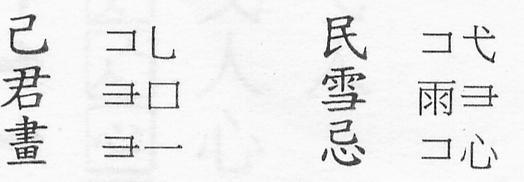 己 コ乚 民 コ弋
君 ヨ口 雪 雨ヨ
畫 ヨ一 忌 コ心